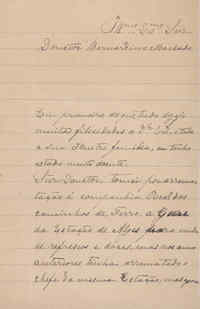 Illmo Exmo Snr
Doutor Bernardino Machado
Em primeiro de tudo
muitas felicidades a V.ª Ex.ª e toda
a sua Illustre familia, eu tenho
estado muito doente.
Snr Doutor, tomei por arrema-
tação á companhia Real dos
caminhos de Ferro, a
da Estação de para venda
de refrescos e dôces, mas nos annos
anteriores tinha arrematado o
chefe da mesma Estação, mas